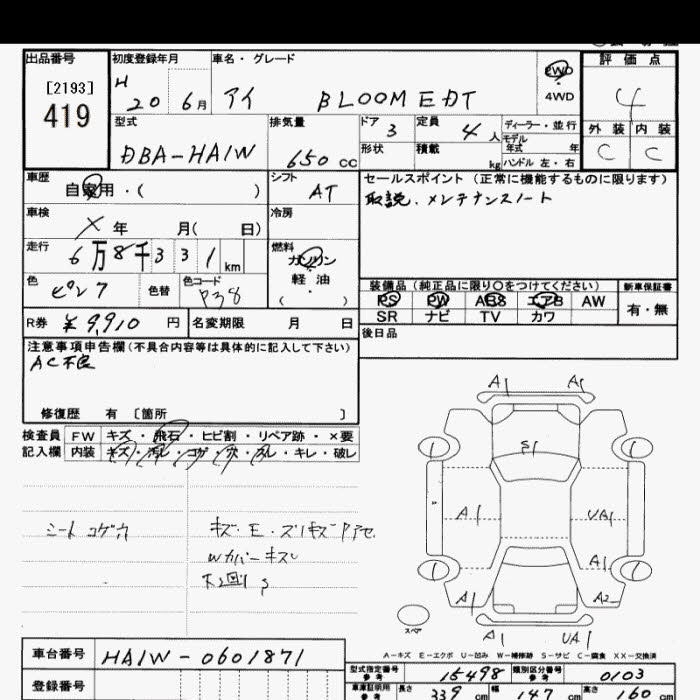 出品番号 初度登録年月 車名・グレード 評価点
[2193]
419
H 20 6月 アイ BLOOM EDT 2WD 4WD 4
型式 排気量 ドア 3 定員 4人 ディーラー・並行 外装 内装
DBA-HA1W 650 cc 形状 積載 kg モデル年式 年 ハンドル 左・右 C C
車歴 自家用・( ) シフト AT セールスポイント(正常に機能するものに限ります)
取説.メンテナンスノート
車検 X 年 月( 日) 冷房
走行 6万8千331km 燃料 ガソリン
軽油
( )
色 ピンク 色替 色コード P38
装備品(純正品に限り〇をつけてください) 新車保証書
PS PW ABS エアB AW 有・無
SR ナビ TV カワ
R券 ¥9,910 円 名変期限 月 日
後日品
注意事項申告欄(不具合内容等は具体的に記入して下さい)
AC不良
修復歴 有 〔箇所 〕
検査員 FW キズ・飛石・ヒビ割・リペア跡・×要
記入欄 内装 キズ・汚レ・コゲ・穴・スレ・キレ・破レ
シートコゲ穴
キズ・E・スリキズ
Wカバーキズ
A1 A1
S1
A1 UA1
A1
A1 A2
A1 UA1
スペア
A-キズ E-エクボ U-凹み W-補修跡 S-サビ C-腐食 XX-交換済
車台番号 HA1W-0601871
登録番号
型式指定番号 参考 15498 類別区分番号 参考 0103
車庫証明用 参考 長さ 339 cm 幅 147 cm 高さ 160 cm